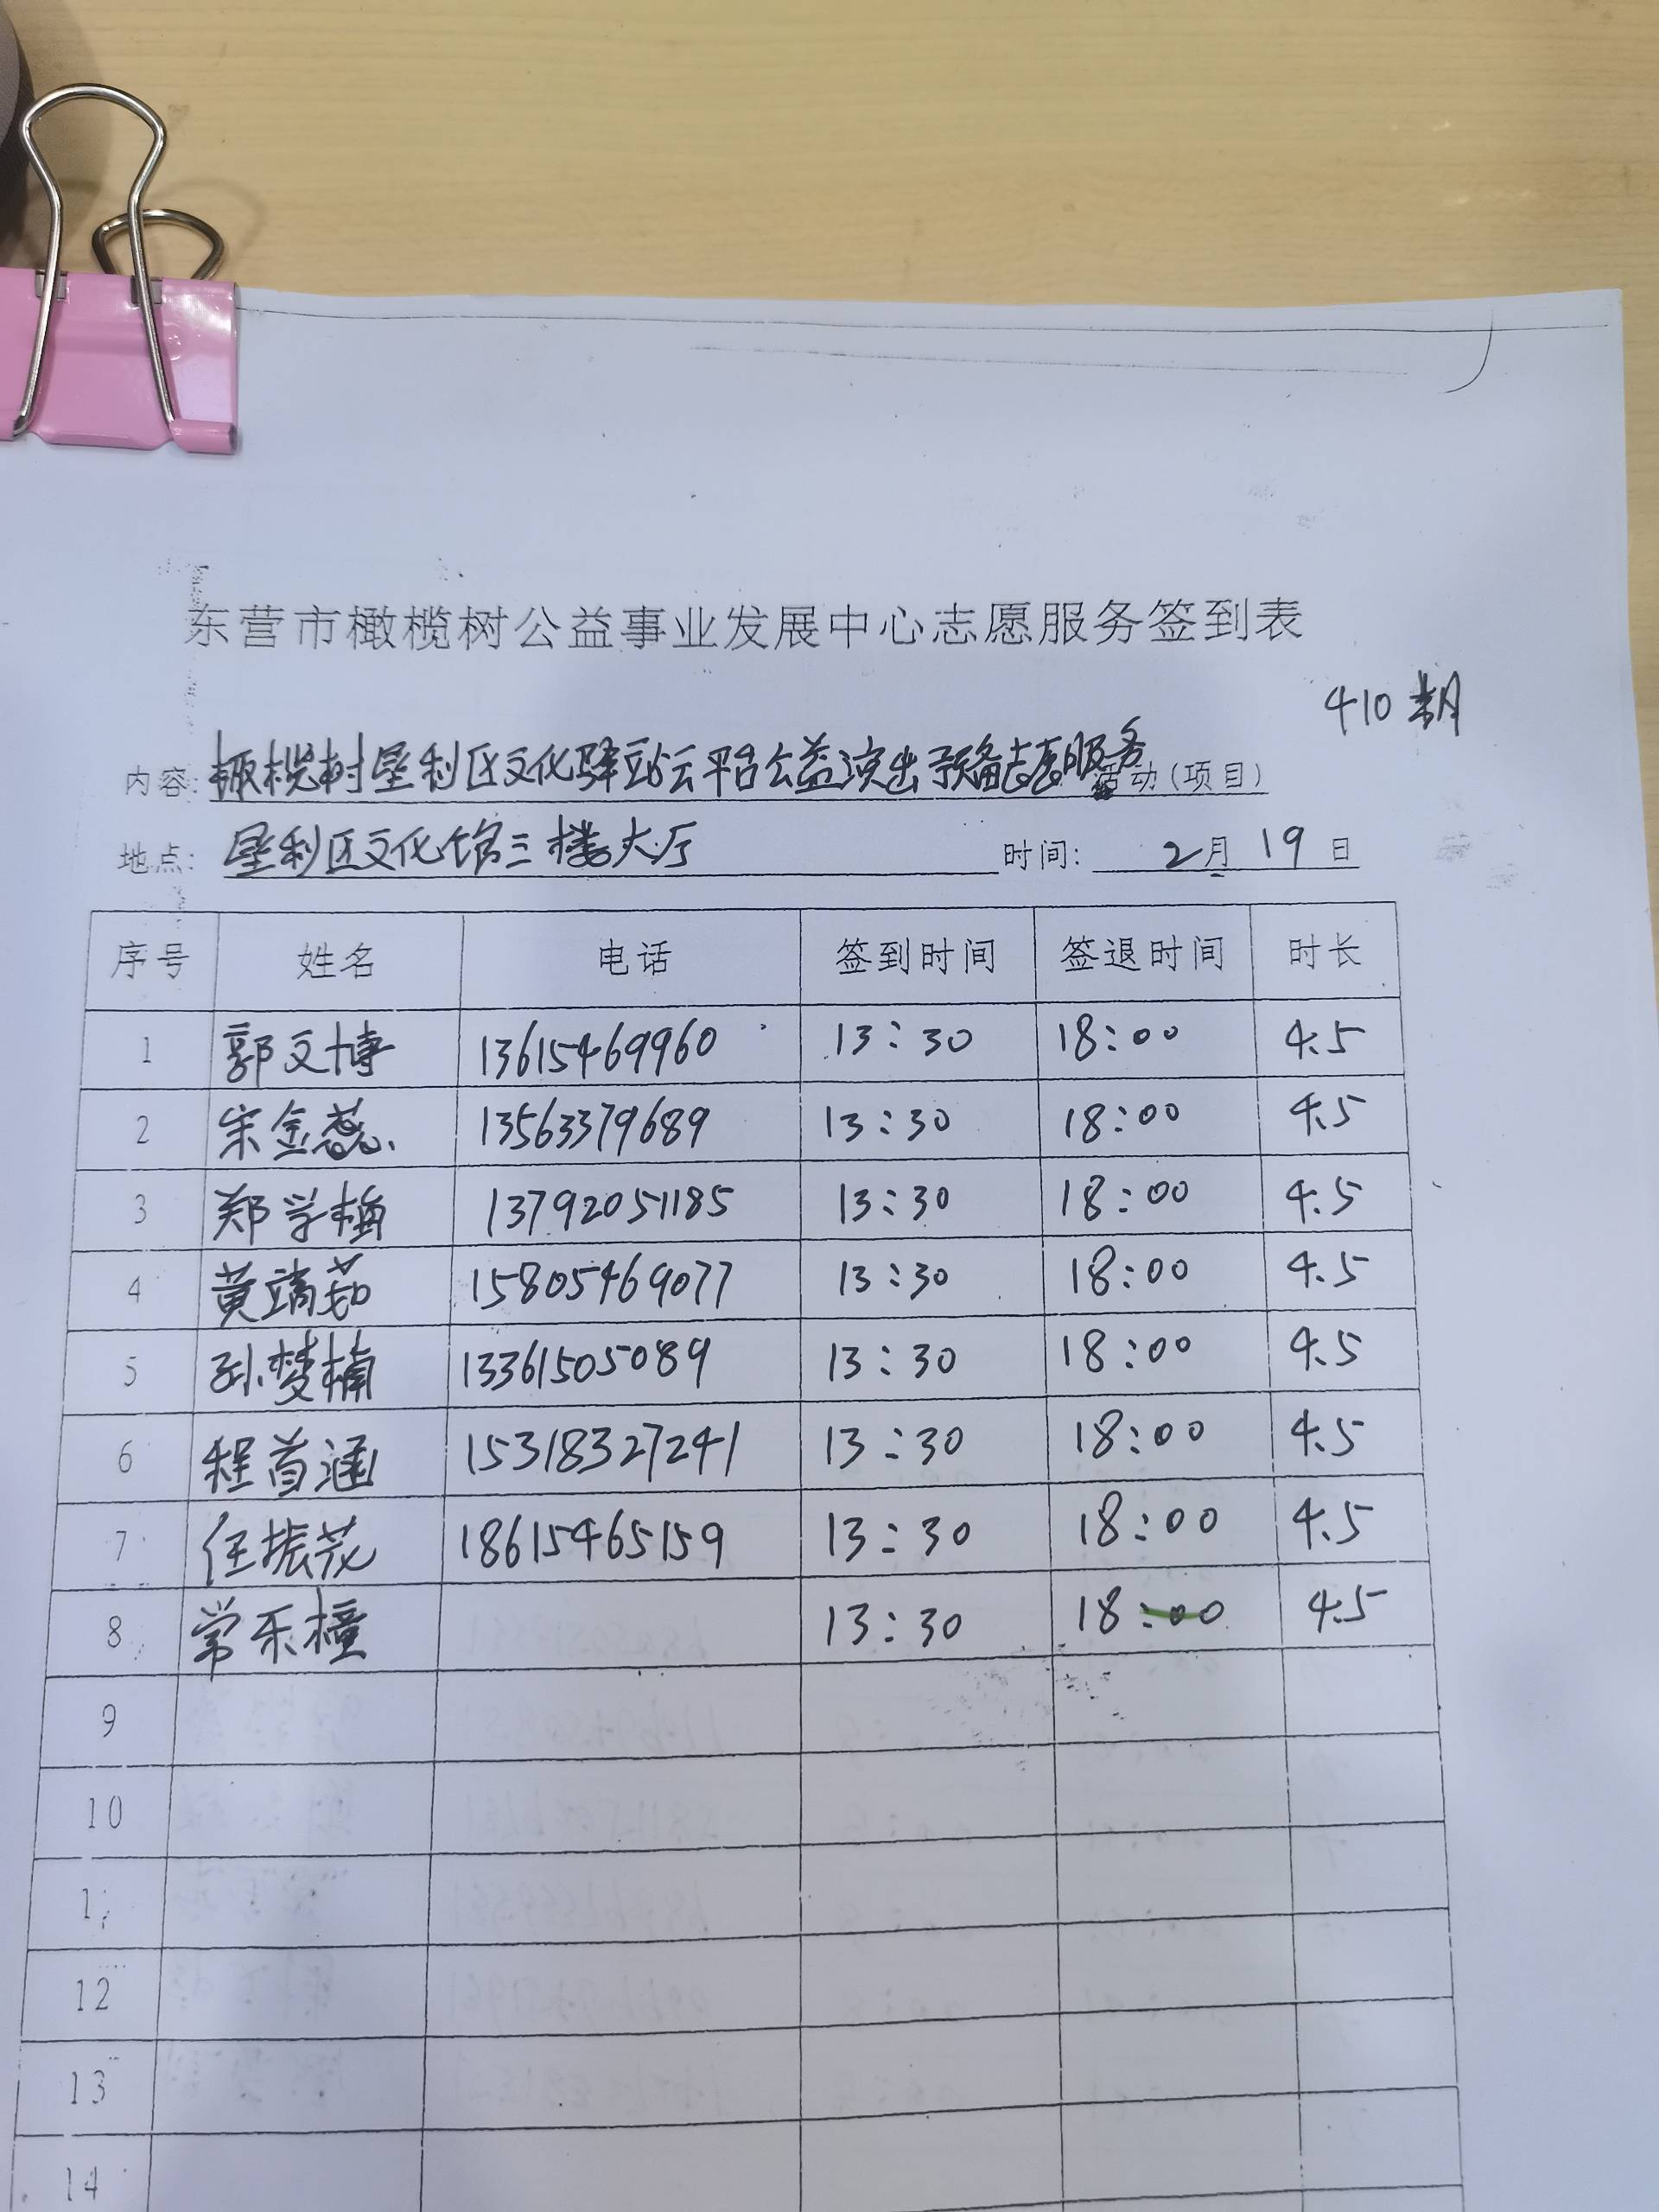 东营市橄榄树公益事业发展中心志愿服务签到表
410期
内容:橄榄树垦利区文化驿站云平台公益演出预备志愿服务活动(项目)
地点:垦利区文化馆三楼大厅 时间: 2月19日
序号 姓名 电话 签到时间 签退时间 时长
1 郭文博 13615469960 13:30 18:00 4.5
2 宋金蕊 13563379689 13:30 18:00 4.5
3 郑学梅 13792051185 13:30 18:00 4.5
4 黄靖茹 15805469077 13:30 18:00 4.5
5 孙梦楠 13361505089 13:30 18:00 4.5
6 程首涵 15318327241 13:30 18:00 4.5
7 任振花 18615465159 13:30 18:00 4.5
8 常乐橦 13:30 18:00 4.5
9
10
11
12
13
14